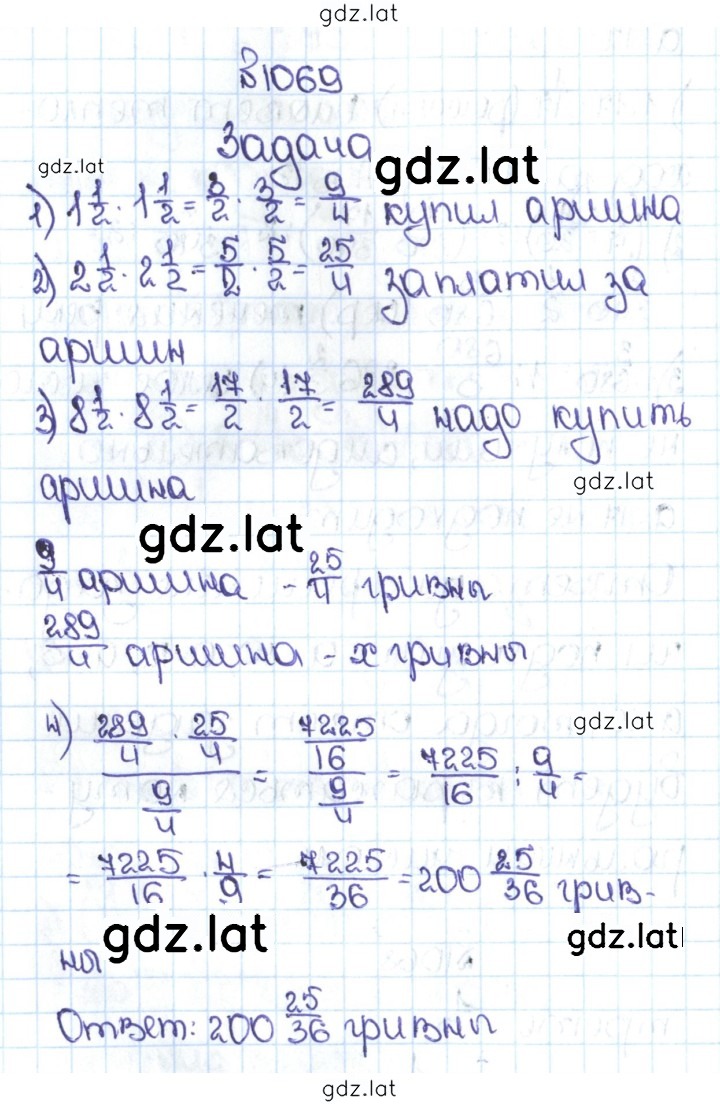 gdz.lat
В1069
Задача
gdz.lat
gdz.lat
1) 1 1/2 · 1 1/2 = 3/2 · 3/2 = 9/4 купил аршина
2) 2 1/2 · 2 1/2 = 5/2 · 5/2 = 25/4 заплатил за
аршин
3) 8 1/2 · 8 1/2 = 17/2 · 17/2 = 289/4 надо купить
аршина
gdz.lat
gdz.lat
9/4 аршина - 25/4 гривны
289/4 аршина - х гривны
gdz.lat
4) (289/4 · 25/4)/(9/4) = (7225/16)/(9/4) = 7225/16 : 9/4 =
= 7225/16 · 4/9 = 7225/36 = 200 25/36 грив-
ны
gdz.lat
gdz.lat
Ответ: 200 25/36 гривны
gdz.lat